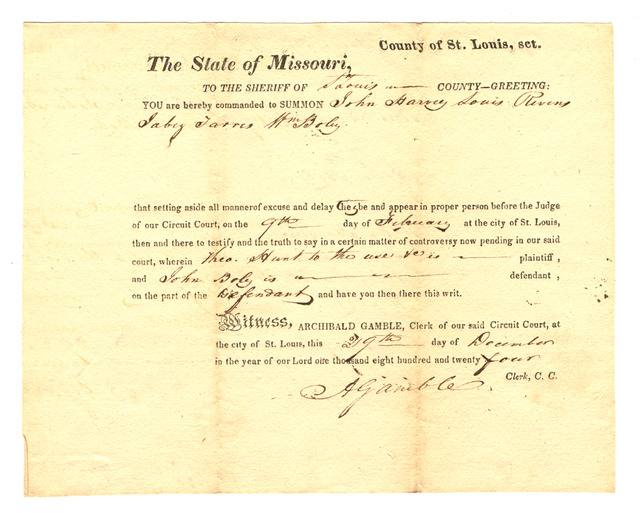 County of St. Louis, sct.
The State of Missouri,
TO THE SHERIFF OF St Louis COUNTY—GREETING:
YOU are hereby commanded to SUMMON John Harvey Louis Rivens
Jabez Farres Wm Boly
that setting aside all manner of excuse and delay they be and appear in proper person before the Judge
of our Circuit Court, on the 9th day of February at the city of St. Louis,
then and there to testify and the truth to say in a certain matter of controversy now pending in our said
court, wherein Theo. Hunt to the use &c is plaintiff,
and John Boly is defendant,
on the part of the Defendant and have you then there this writ.
Witness, ARCHIBALD GAMBLE, Clerk of our said Circuit Court, at
the city of St. Louis, this 29th day of December
in the year of our Lord one thousand eight hundred and twenty four
A Gamble
Clerk, C. C.